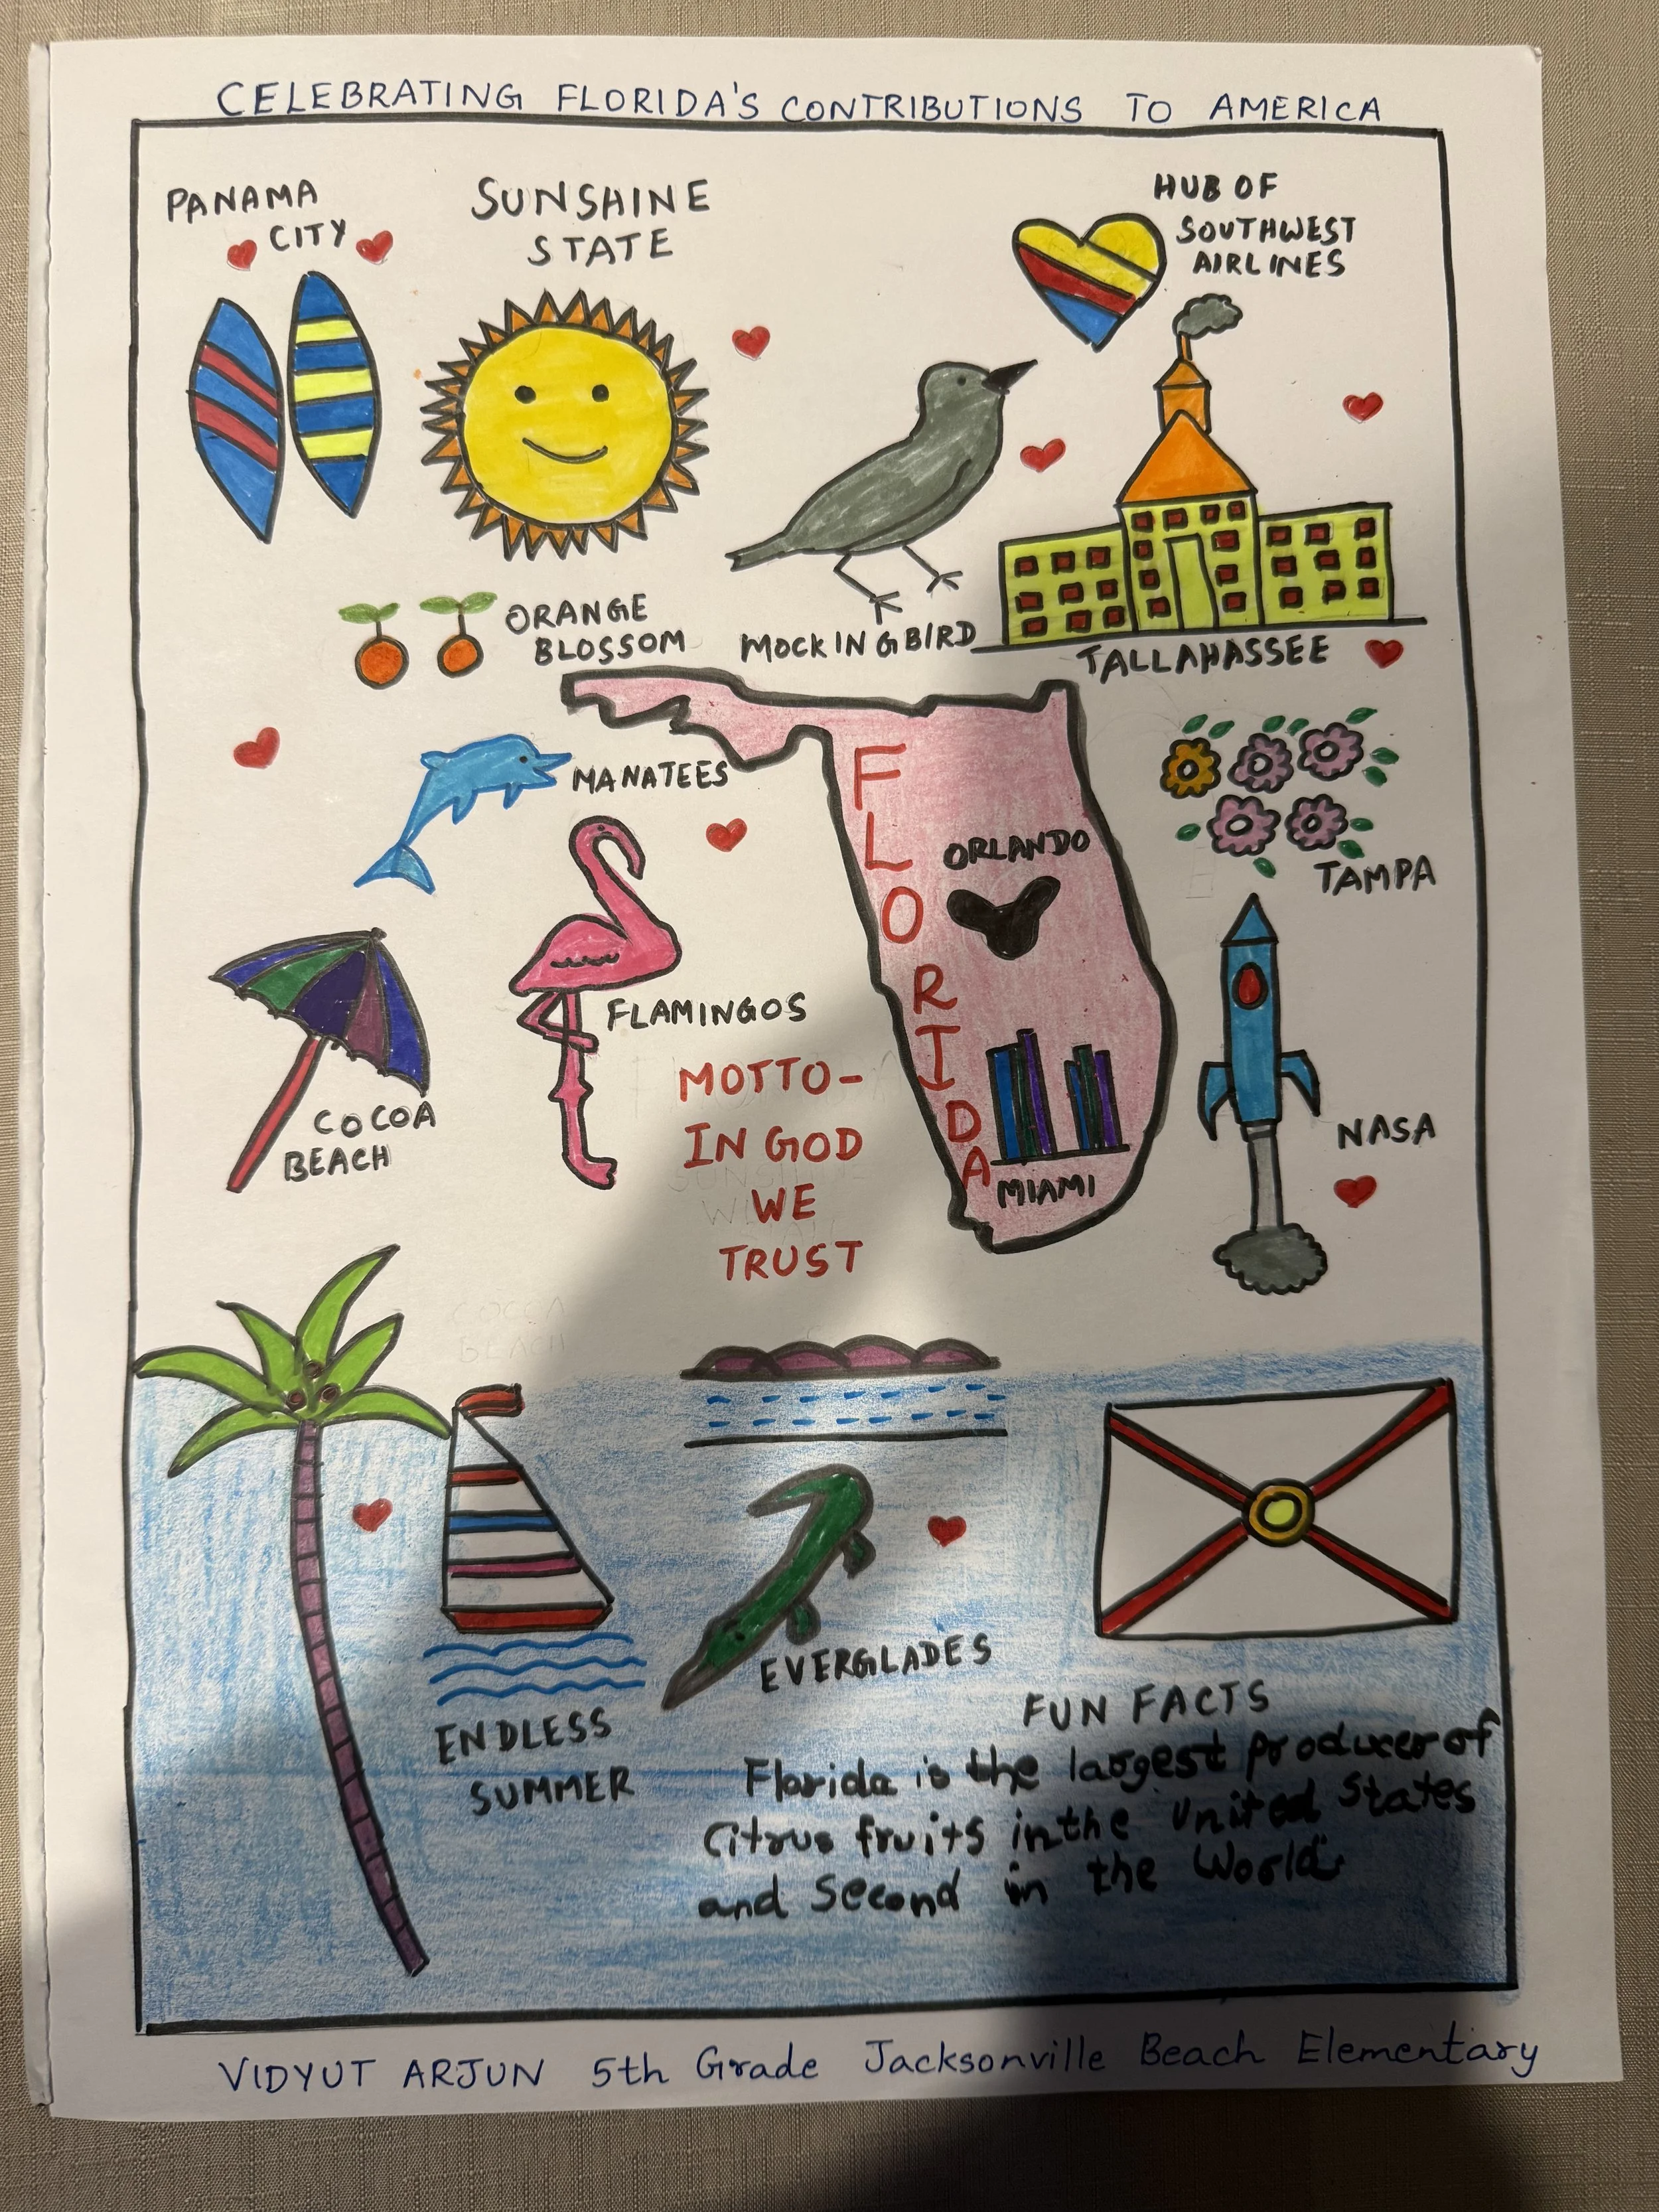 CELEBRATING FLORIDA'S CONTRIBUTIONS TO AMERICA
PANAMA
CITY
SUNSHINE
STATE
HUB OF
SOUTHWEST
AIRLINES
ORANGE
BLOSSOM
MOCKINGBIRD
TALLAHASSEE
MANATEES
FLORIDA
ORLANDO
TAMPA
FLAMINGOS
COCOA
BEACH
MOTTO-
IN GOD
WE
TRUST
MIAMI
NASA
COCOA
BEACH
EVERGLADES
ENDLESS
SUMMER
FUN FACTS
Florida is the largest producer of
Citrus fruits in the United States
and Second in the World.
VIDYUT ARJUN 5th Grade Jacksonville Beach Elementary